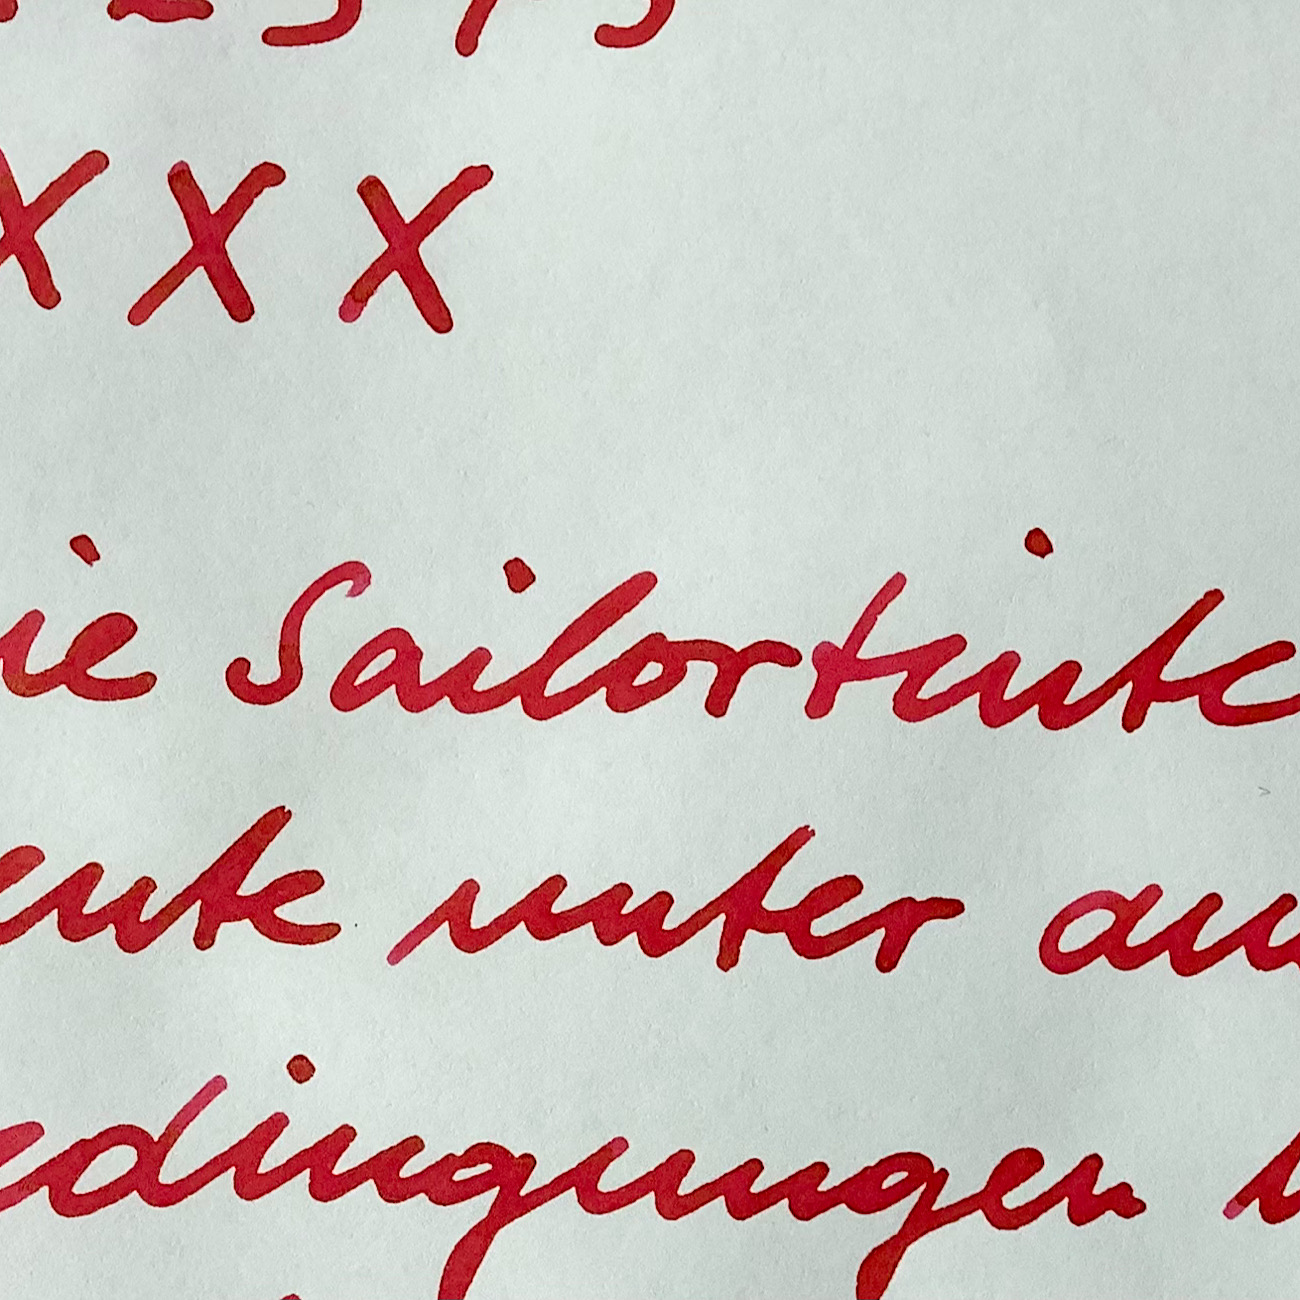 X X X
ie Sailortinte
eute unter an
edingungen